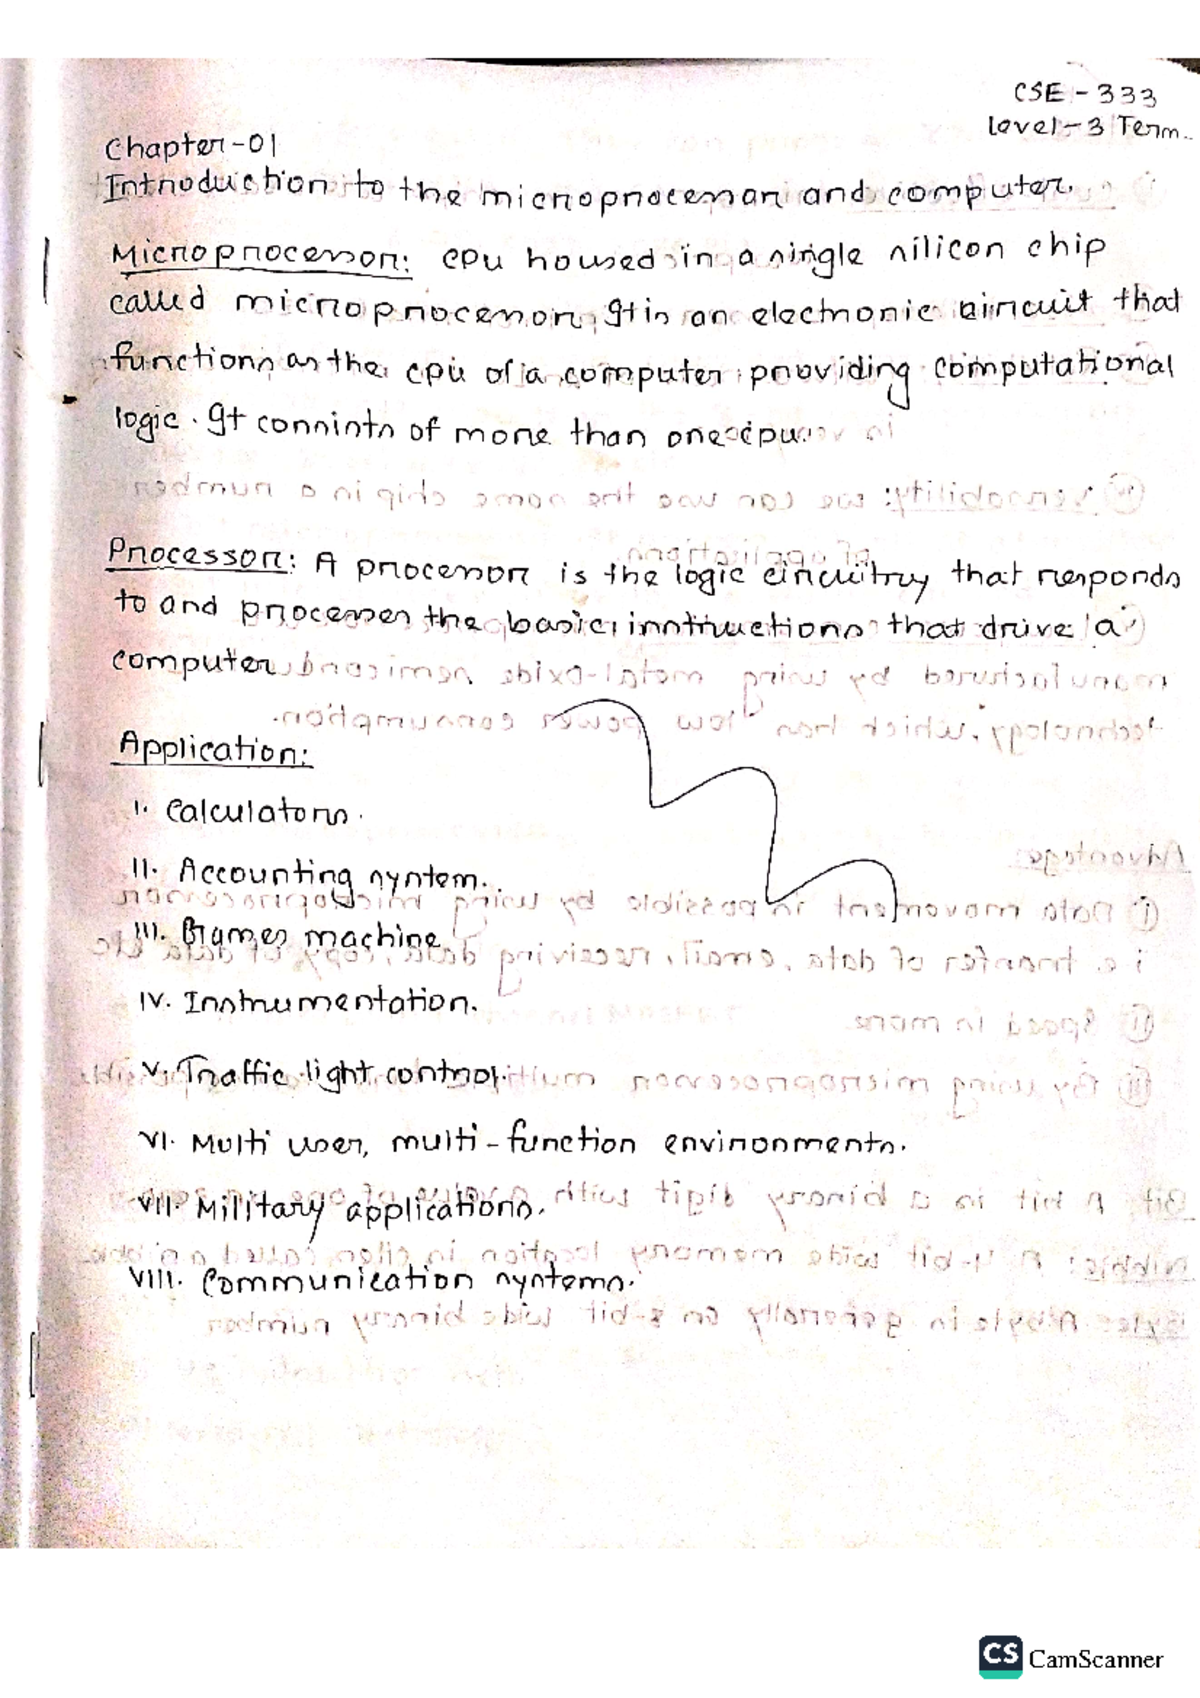 CSE - 333
Level - 3 Term
Chapter - 01
Introduction to the microprocessor and computer.
Microprocessor: CPU housed in a single silicon chip
called microprocessor. It is an electronic circuit that
functions as the cpu of a computer providing computational
logic. It consists of more than one cpu.
Processor: A processor is the logic circuitry that responds
to and processes the basic instructions that drive a
computer.
Application:
I. Calculators.
II. Accounting system.
III. Games machine
IV. Instrumentation.
V. Traffic light control.
VI. Multi user, multi-function environments.
VII. Military applications.
VIII. Communication systems.
CS CamScanner